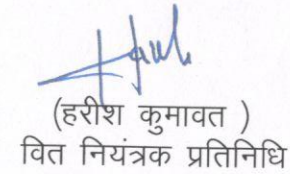 (हरीश कुमावत )
वित नियंत्रक प्रतिनिधि